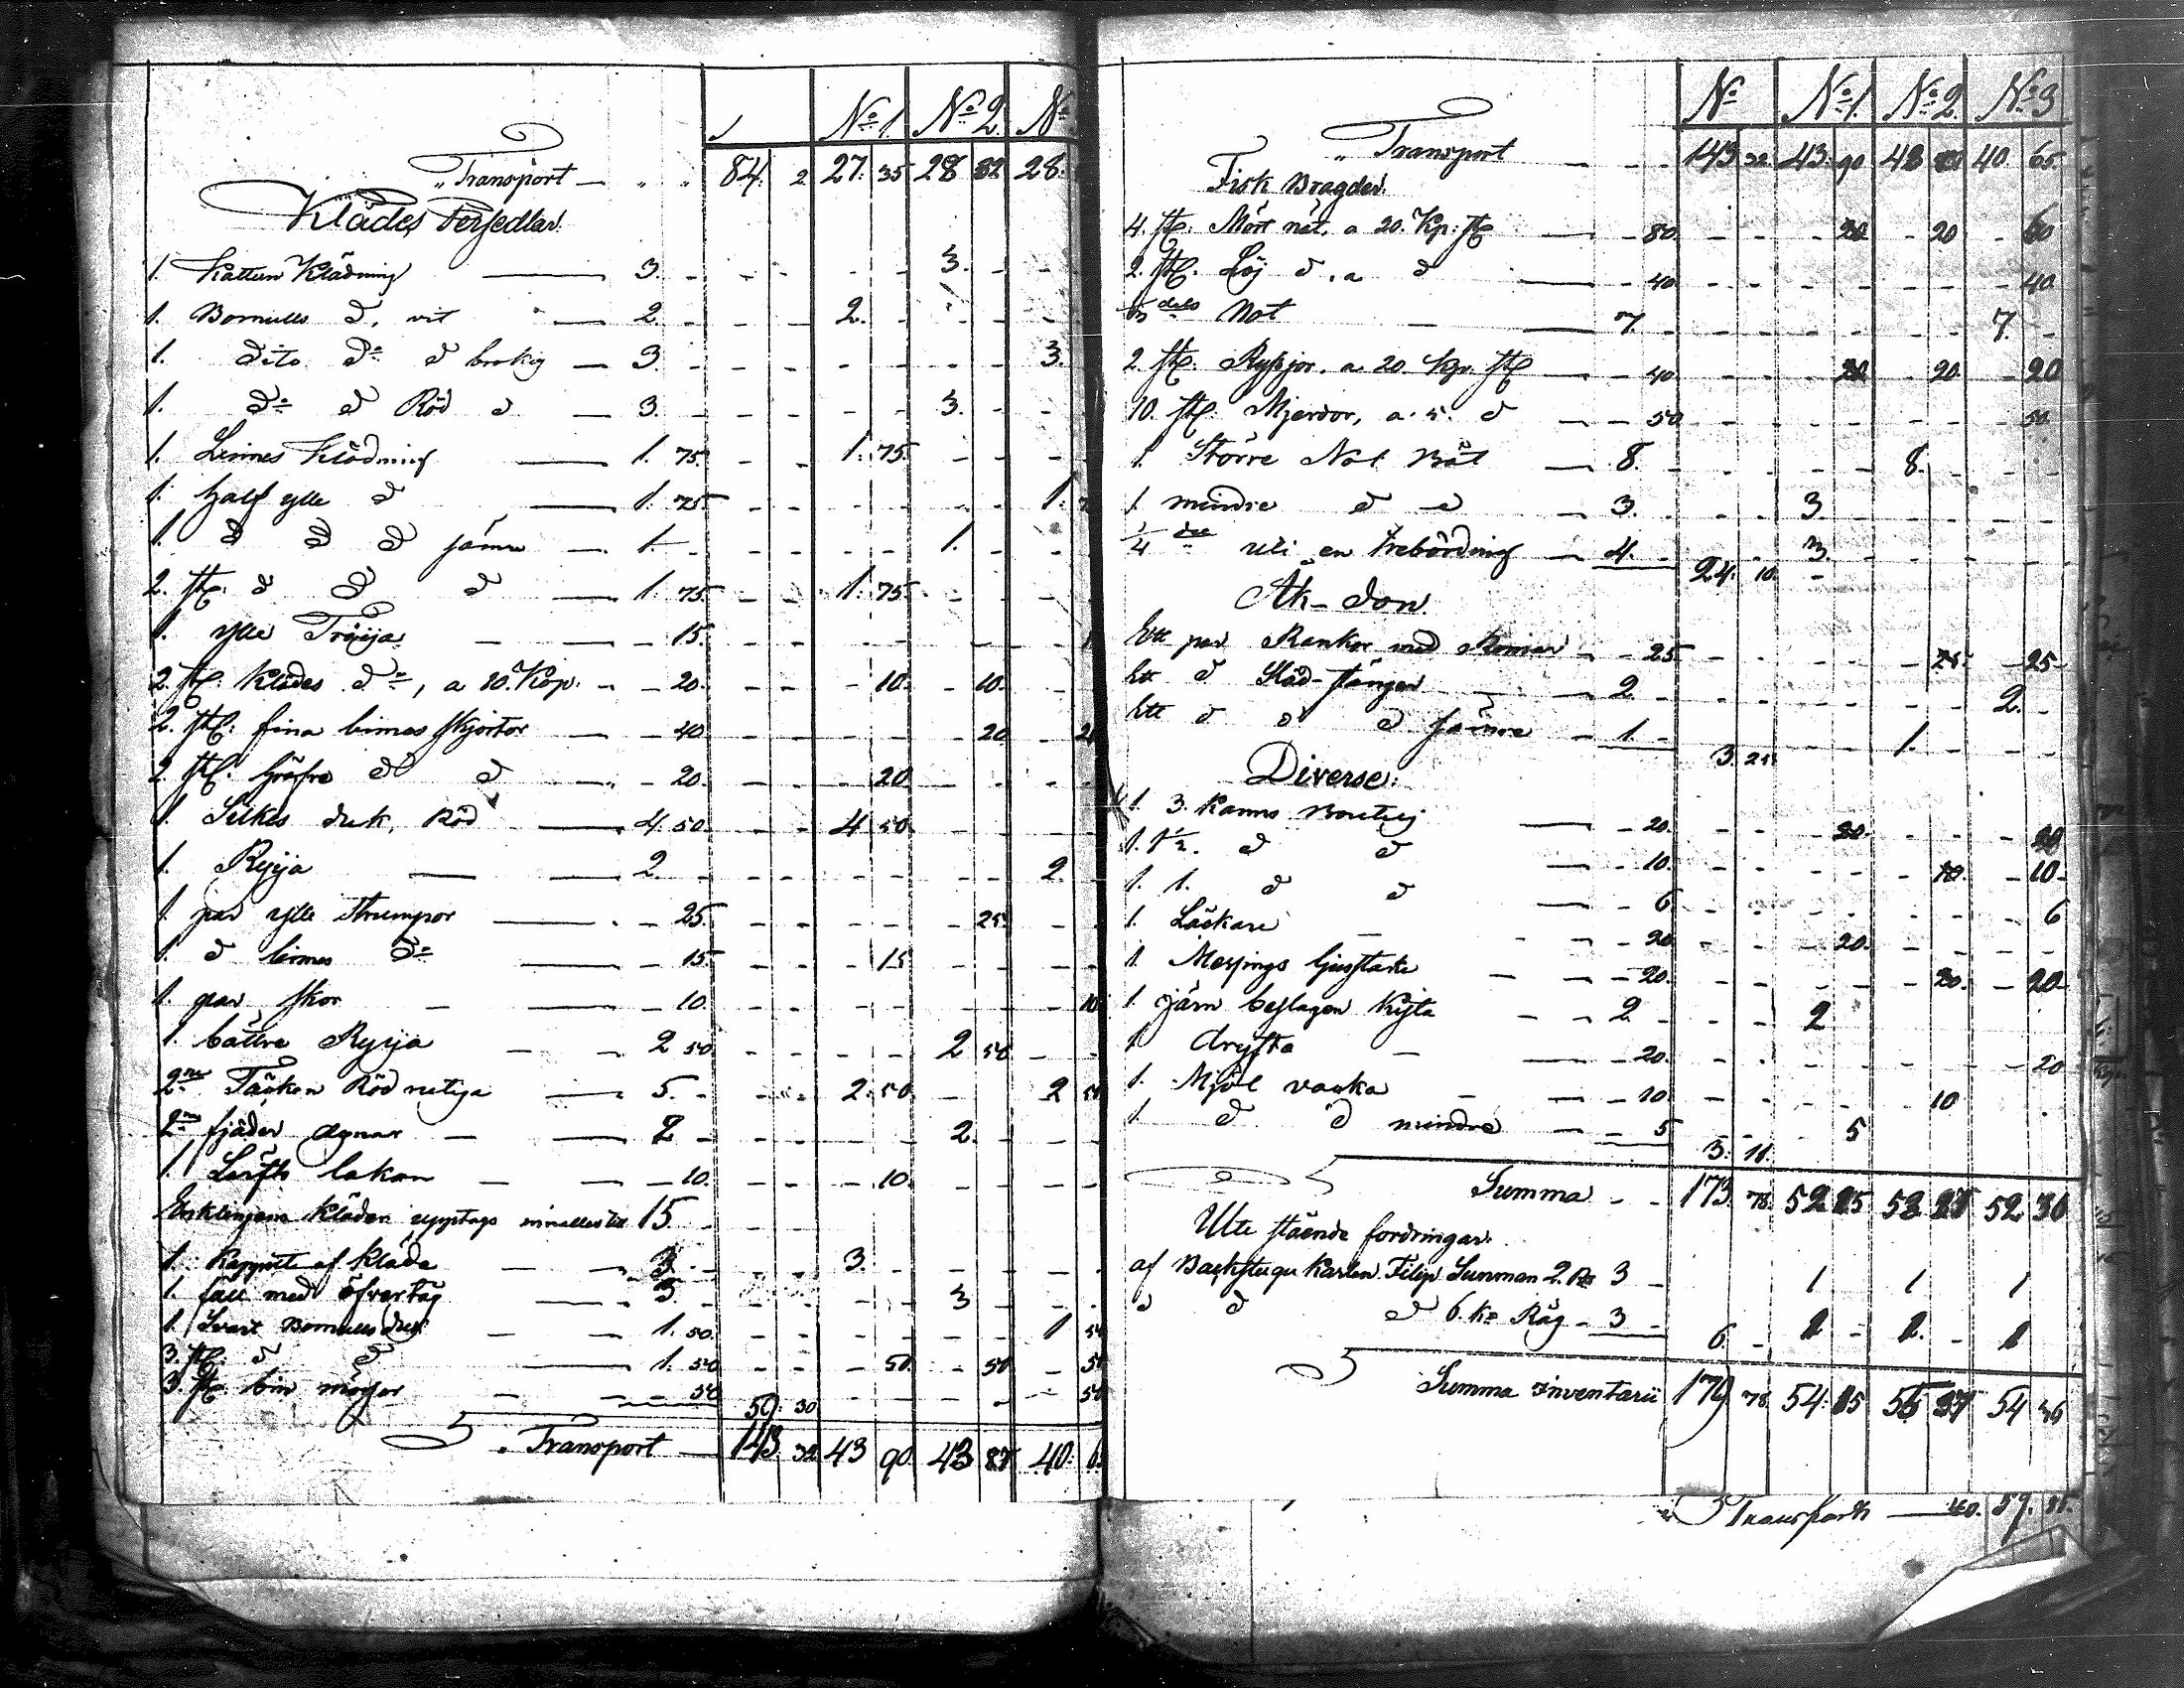 No 1. No 2. No
„Transport — „ „ 84. 2 27. 35 28 82 28.
Klädes Persedlar.
1. Kattun Klädning — 3. - - - - - 3. - -
1. Bomulls d. vit — 2. - - - 2. - - -
1. dito do d brokig — 3. - - - - - - 3.
1. do d Röd d — 3. - - - - - 3. - -
1. Linnes Klädning — 1. 75. - - 1. 75. - - -
1. half ylle d — 1. 75. - - - - - - 1.
1. d d d sämre — 1. - - - - - 1. - -
2. st. d d d — 1. 75. - - 1. 75. - - -
1. ylle Tröija — - 15. - - - - - -
2. st. Klädes do, a 10. Kop. - - 20. - - - 10. - 10. - -
2. st. fina linnes skjortor — - 40. - - - - - 20 -
2. st. gröfre d d - 20. - - - 20. - - -
1. Silkes duk, Röd — 4. 50. - - 4 50. - - -
1. Ryija — 2. - - - - - - 2.
1. par ylle strumpor — - 25. - - - - - 25. - -
1. d linnes do — - 15. - - - 15 - - -
1. par skor — - 10. - - - - - - 10
1. bättre Ryija — 2 50. - - - - 2 50 - -
2ne Täcken Röd rutiga — 5. - - - 2. 50. - - 2 50
2ne fjäder dynor — 2 - - - - - 2. - -
1. Lärfts lakan — - 10. - - - 10. - - -
Enklingens kläder upptags emellertid 15. - -
1. Kappa af kläde — 3. - - - 3. - - - -
1. fäll med öfvertåg — 3. - - - - - 3 - -
1. Svart Bomulls duk — 1. 50. - - - - - - 1 50
3. st. d d — 1. 50 - - - 50. - 50. - 50
3. st. bin mössor — - 50 - - - - - - 50
59. 30
„Transport — 143. 32 43 90. 43 87 40.
No No 1. No 2. No 3
„Transport — 143 32 43. 90 43 87 40. 65
Fisk Bragder.
4. st. Mört nät, a 20. Kp. st. — - 80. - - - 20 - 20 - 60
2. st. Löj d. a d — - 40. - - - - - - - 40
dels Not — 7. - - - - - - 7. -
2. st. Rysjor. a 20. Kp. st. — - 40. - - - 20. - 20. - 20
10. st. Mjerdor, a. 5. d — - 50 - - - - - - - 50.
1. Större Not Båt — 8. - - - - - 8. - - -
1 mindre d d — 3. - - - 3.
1/4 del uti en trebördning — 4. - 24. 10. 3.
Åk-don.
Ett par Kankor med Remiar - - 25. - - - - - 25. - 25
Ett d Släd-stänger — 2. - - - - - - 2. -
Ett d d d sämre - 1. - 3. 25. - - 1. - -
Diverse.
1. 3. Kanns Bouteij — - 20. - - - 20. - - - 20
1. 1½. d d — - 10. - - - - - 10. - 10
1. 1. d d — - 6. - - - - - - - 6
1. Läskare - - 20. - - - 20. - - - -
1. Messings ljusstake - - 20. - - - - - 20. - 20
1. järn beslagen Kista - - 2 - - - 2
1. dryfta — - 20. - - - - - - - 20
1. Mjöl vacka — - 10. - - - - - 10
1. d d mindre — - 5 3. 11. - 5
Summa - - 173. 78. 52 25 53 27 52 36
Ute stående fordringar.
af Backstugu Karlen Filip Sunman 2. 3 - 1 1 1
d d d 6. kp Råg - 3 - 6. - 1 - 1. - 1
Summa Inventarii 179 78. 54. 25 55 27 54 36
Transport — 40. 59. 85.